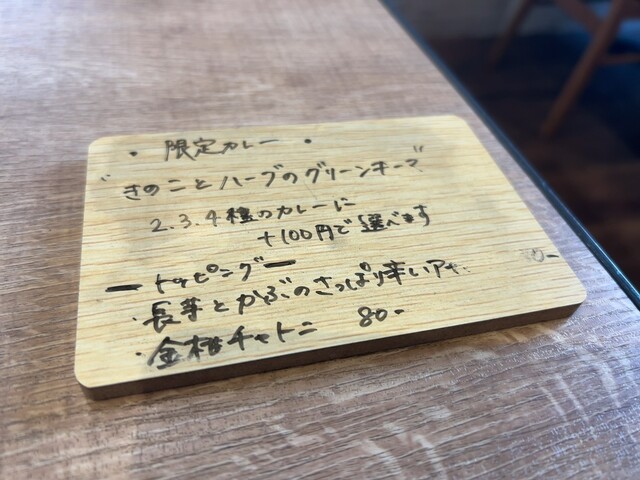 ・限定カレー・
"きのことハーブのグリーンキーマ"
2.3.4種のカレーに
+100円で選べます
ートッピングー
・長芋とかぶのさっぱり辛いアチ
・金柑チャトニ 80-